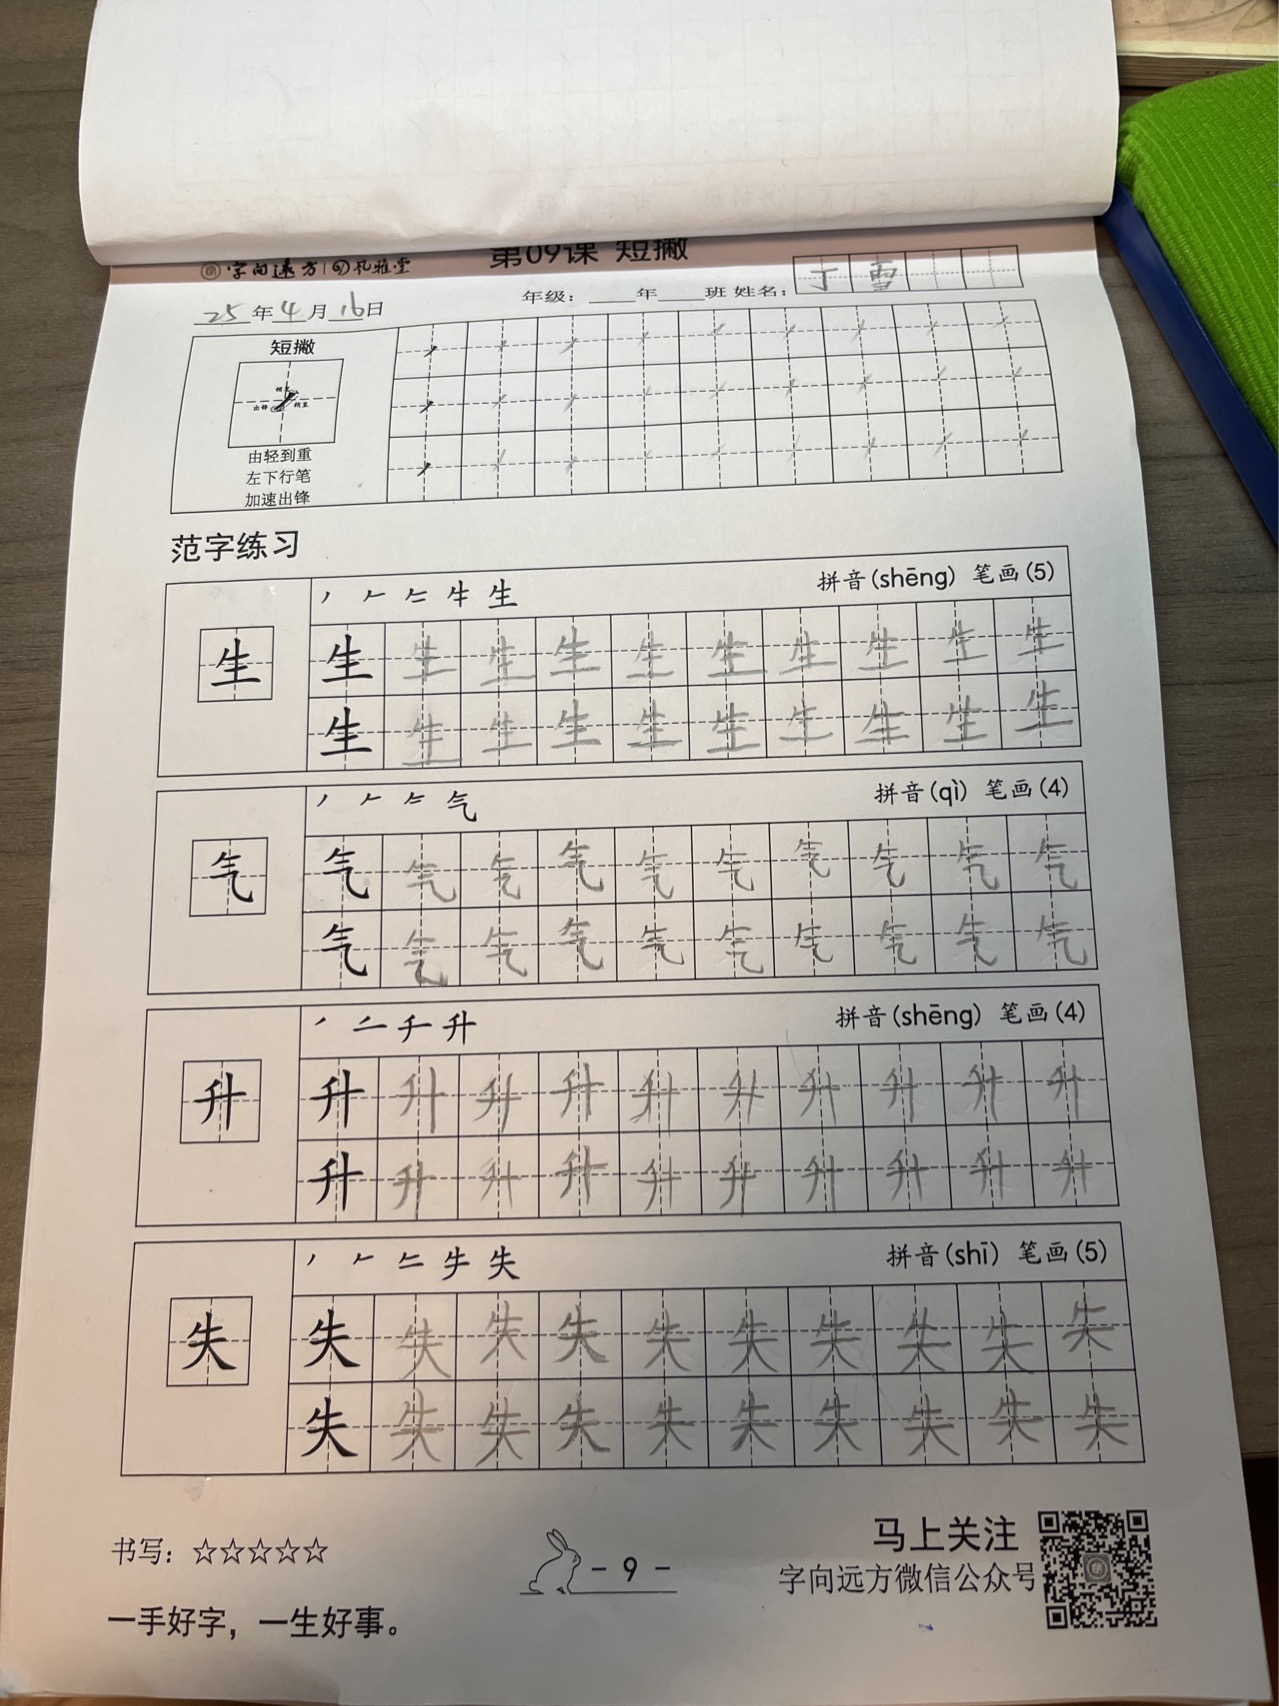 字向远方 孔雅堂 第09课 短撇
25年4月16日 年级：____年____班 姓名：丁雪
短撇
由轻到重
左下行笔
加速出锋
范字练习
生 拼音(shēng) 笔画(5)
生 生 生 生 生 生 生 生 生 生 生
生 生 生 生 生 生 生 生 生 生
气 拼音(qì) 笔画(4)
气 气 气 气 气 气 气 气 气 气 气
气 气 气 气 气 气 气 气 气 气
升 拼音(shēng) 笔画(4)
升 升 升 升 升 升 升 升 升 升 升
升 升 升 升 升 升 升 升 升 升
失 拼音(shī) 笔画(5)
失 失 失 失 失 失 失 失 失 失 失
失 失 失 失 失 失 失 失 失 失
书写：☆☆☆☆☆
一手好字，一生好事。
- 9 -
马上关注
字向远方微信公众号